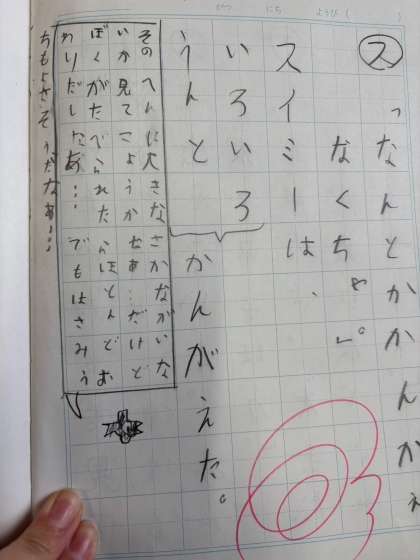 にち　ようび（　）
ス
「なんとかかんかえ
なくちゃ。」
スイミーは、
いろいろ
うんとかんがえた。
そのへんに大きなさかながいな
いか見てこようかなあ…だけど
ぼくがたべられたらほとんどお
わりだしなあ…でもはさみう
ちもよさそうだなぁ…